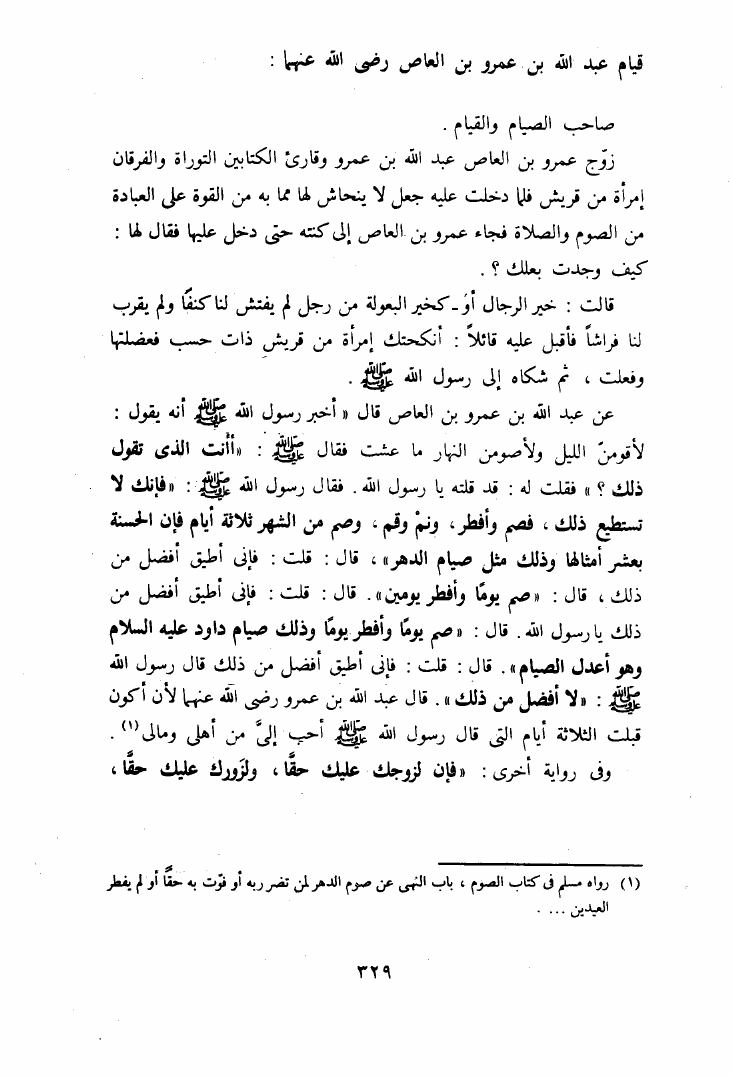 قيام عبد الله بن عمرو بن العاص رضى الله عنهما :
صاحب الصيام والقيام .
زوّج عمرو بن العاص عبد الله بن عمرو وقارئ الكتابين التوراة والفرقان
إمرأة من قريش فلما دخلت عليه جعل لا ينحاش لها مما به من القوة على العبادة
من الصوم والصلاة فجاء عمرو بن العاص إلى كنته حتى دخل عليها فقال لها :
كيف وجدت بعلك ؟ .
قالت : خير الرجال أوْ - كخير البعولة من رجل لم يفتش لنا كنفًا ولم يقرب
لنا فراشاً فأقبل عليه قائلاً : أنكحتك إمرأة من قريش ذات حسب فعضلتها
وفعلت ، ثم شكاه إلى رسول الله ﷺ .
عن عبد الله بن عمرو بن العاص قال « أخبر رسول الله ﷺ أنه يقول :
لأقومنّ الليل ولأصومن النهار ما عشت فقال ﷺ : «أأنت الذى تقول
ذلك ؟ » فقلت له : قد قلته يا رسول الله . فقال رسول الله ﷺ : «فإنك لا
تستطيع ذلك ، فصم وأفطر ، ونمْ وقم ، وصم من الشهر ثلاثة أيام فإن الحسنة
بعشر أمثالها وذلك مثل صيام الدهر» ، قال : قلت : فإنى أطيق أفضل من
ذلك ، قال : «صم يومًا وأفطر يومين» . قال : قلت : فإنى أطيق أفضل من
ذلك يا رسول الله . قال : «صم يومًا وأفطر يومًا وذلك صيام داود عليه السلام
وهو أعدل الصيام» . قال : قلت : فإنى أطيق أفضل من ذلك قال رسول الله
ﷺ : «لا أفضل من ذلك» . قال عبد الله بن عمرو رضى الله عنهما لأن أكون
قبلت الثلاثة أيام التى قال رسول الله ﷺ أحب إلىَّ من أهلى ومالى(١) .
وفى رواية أخرى : «فإن لزوجك عليك حقًّا ، ولزورك عليك حقًّا ،
(١) رواه مسلم فى كتاب الصوم ، باب النهى عن صوم الدهر لمن تضرر به أو فوّت به حقًّا أو لم يفطر
العيدين ... .
٣٢٩